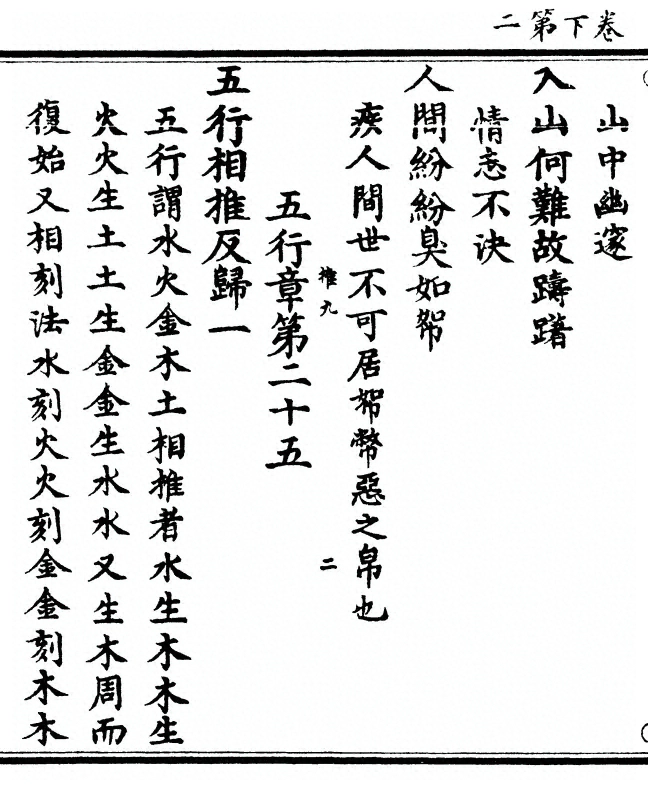 卷下第二
山中幽邃
入山何難故躊躇
情志不決
人間紛紛臭如帤
疾人間世不可居帤幣惡之帛也
推九 二
五行章第二十五
五行相推反歸一
五行謂水火金木土相推者水生木木生
火火生土土生金金生水水又生木周而
復始又相刻法水刻火火刻金金刻木木